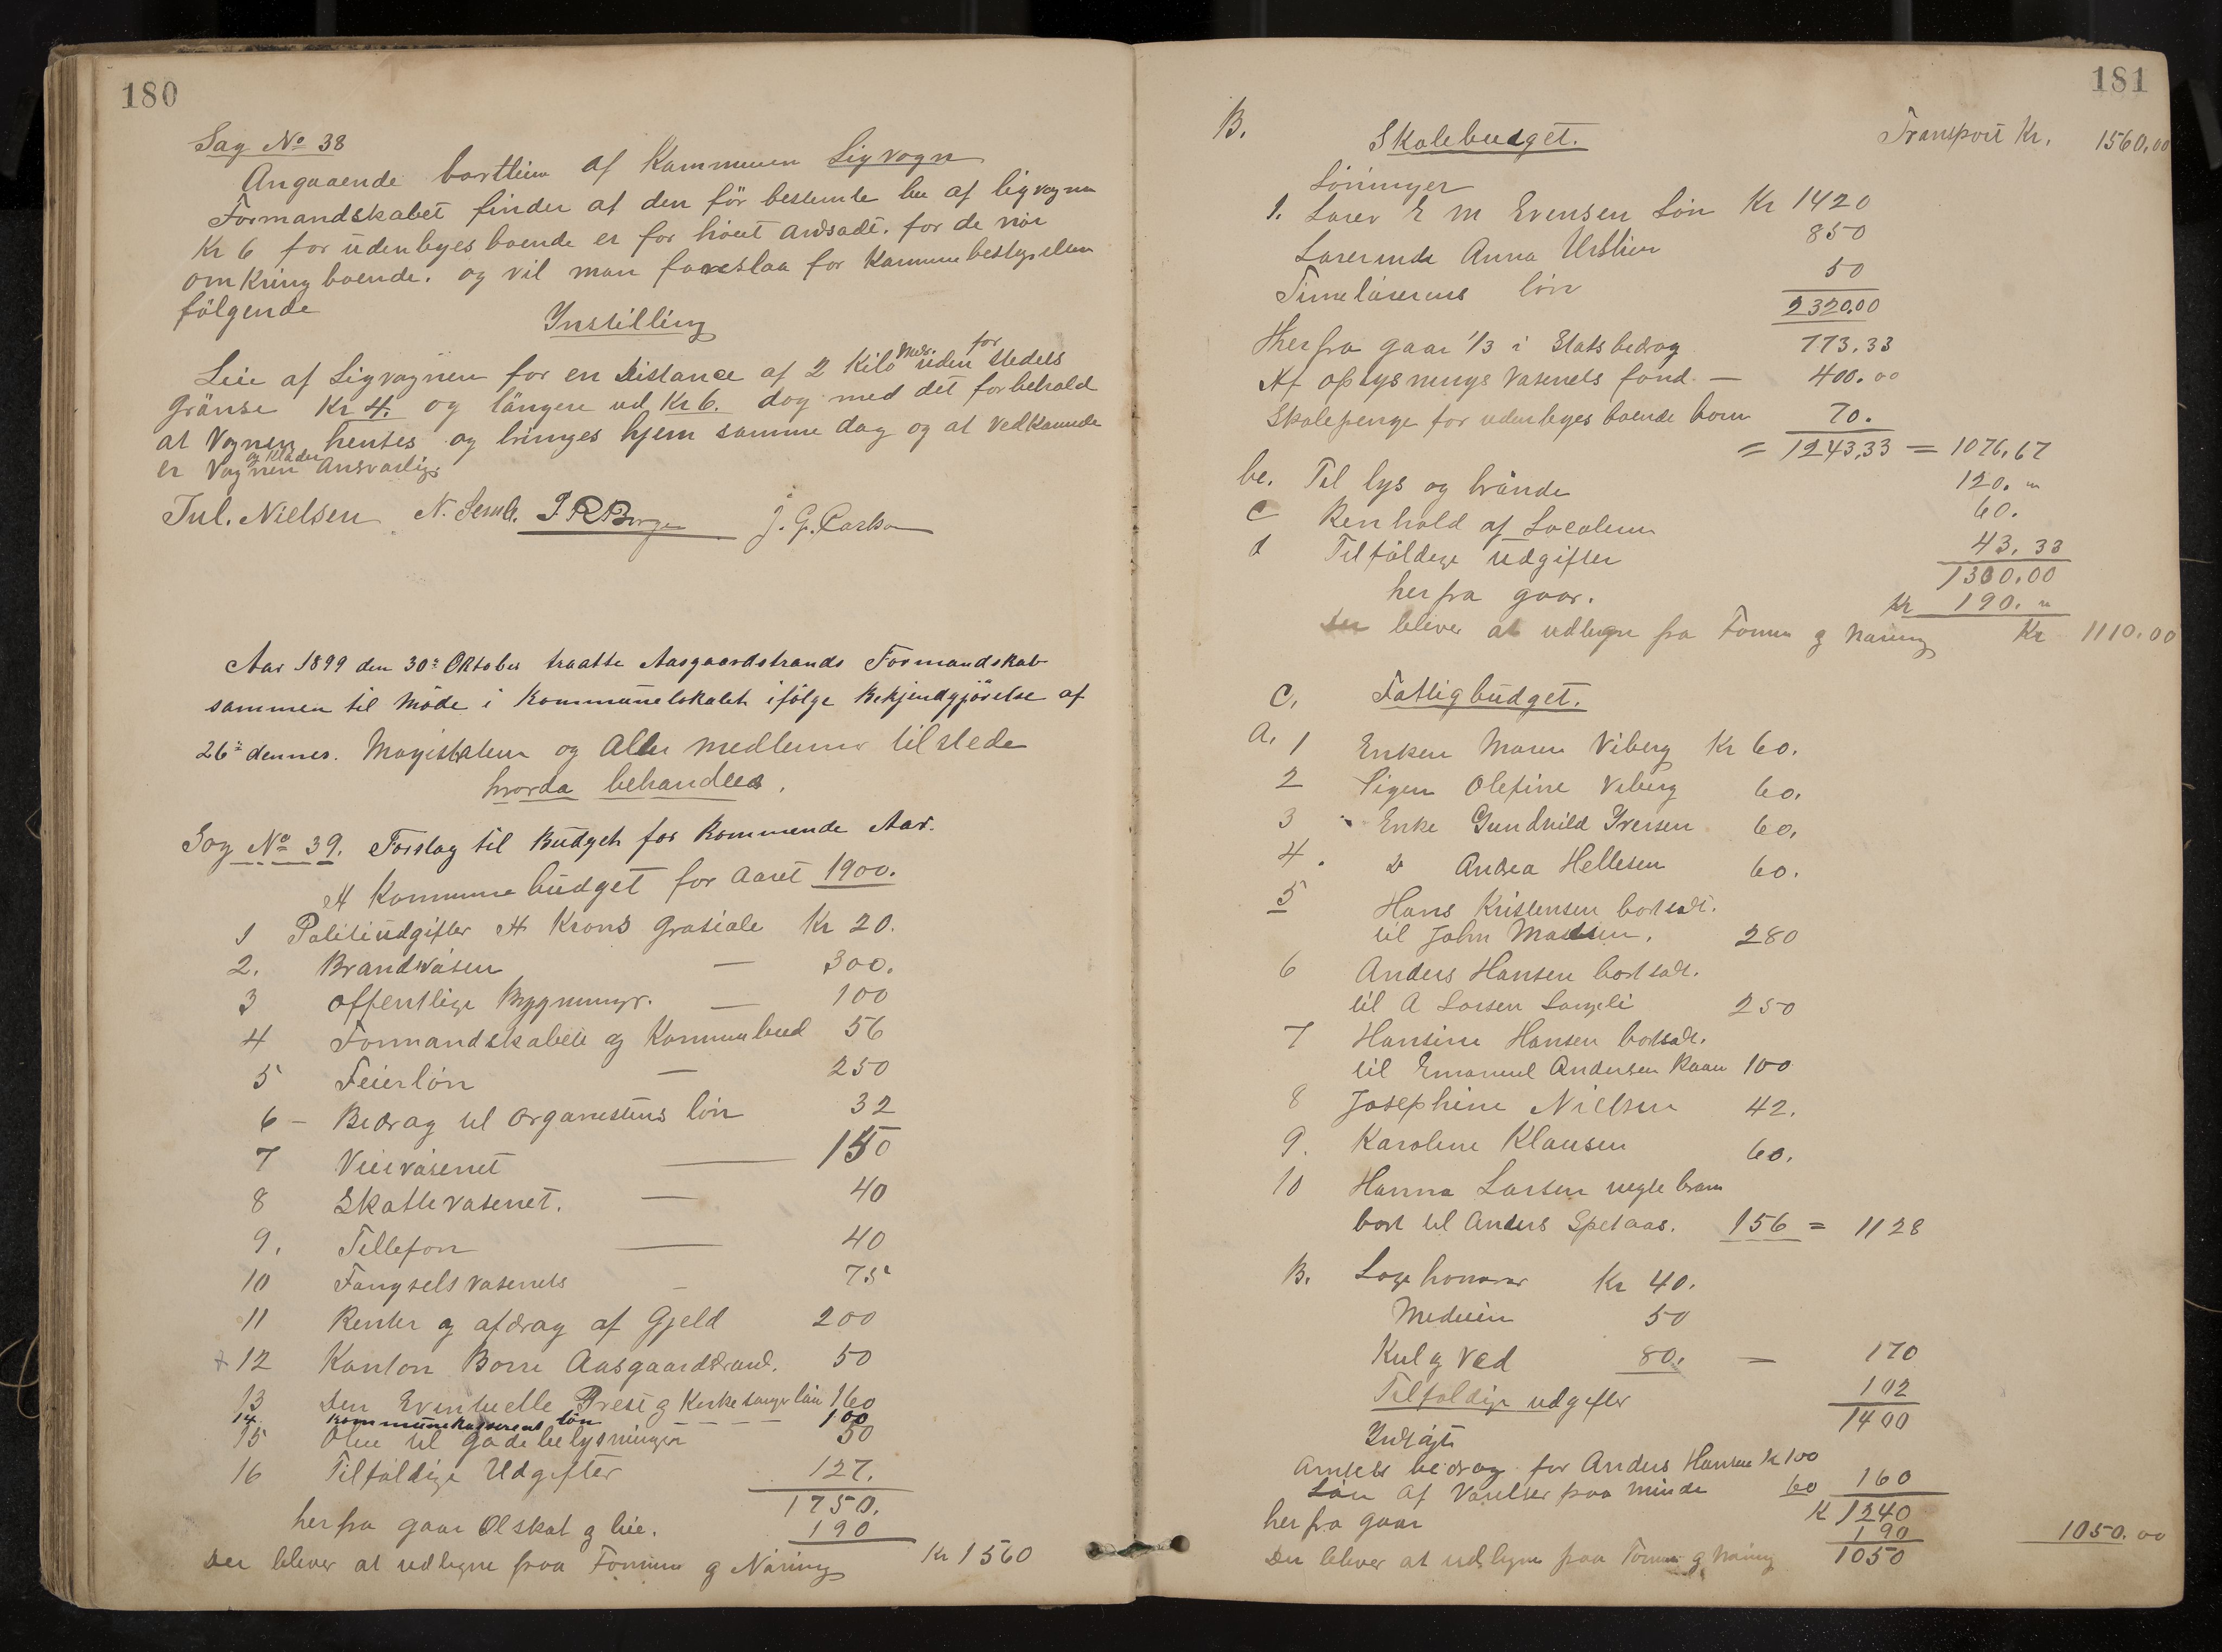 180
Sag No 38
Angaaende bortleie af Kommunen Ligvogn
Formandskabet finder at den för bestemte leie af ligvognen
Kr 6 for udenbyesboende er for höit ansadt. for de när
omkring boende. og vil man foreslaa for Kommunebestyrelsen
fölgende
Instilling
Leie af Ligvognen for en Distance af 2 Kilo Metr. uden for stedets
Gränse Kr 4. og längere ud Kr 6. dog med det forbehold
at Vognen hentes og bringes hjem samme dag og at Vedkomende
er Vognen og Kläder Ansvarlig.
Jul. Nielsen N. Semb. P R Borge J. G. Carlson
Aar 1899 den 30te Oktober traatte Aasgaardstrands Formandskab
sammen til Möde i Kommunelokalet ifölge Bekjendgjörelse af
26de dennes. Magistraten og Aller medlemer tilstede
hvorda behandles.
Sag No 39. Forslag til Budget for kommende Aar.
A Kommune budget for Aaret 1900.
1 Politiudgifter A Krons Grasiale Kr 20.
2. Brandväsen — 300.
3 offentlige Bygninger. — 100
4 Formandskabets og Kommunebud 56
5 Feierlön — 250
6 — Bedrag til organistens lön 32
7 Veiväsenet — 150
8 Skattevasenet. — 40
9. Tellefon — 40
10 Fangselsvasenets — 75
11 Renter og afdrag af Gjeld 200
12 Kanton Borre Aasgaardstrand. 50
13 Den Eventuelle Prest og Kirkesanger lön 160
14. Kommunekassererens lön 100
15 Olie til Gadebelysningen 50
16 Tilfäldige Udgifter 127.
1750.
herfra gaar Ölskat og leie. 190
Der bliver at udligne paa Formue og Näring Kr 1560
181
B. Skolebudget. Transport Kr. 1560.00
Löninger
1. Larer E M Evensen Lön Kr 1420
Larerinde Anna 850
Timelärerens lön 50
2320.00
Herfra gaar 1/3 i Statsbedrag 773.33
Af oplysnings Vasenets fond — 400.00
Skolepenge for udenbyes boende born 70.
= 1243,33 = 1076,67
be. Til lys og brände 120. "
c Renhold af Localern 60.
d Tilfäldige udgifter 43.33
1300.00
herfra gaar. Kr 190. "
Der bliver at udligne fra Formue og Naring Kr 1110.00
C. Fattigbudget.
A. 1 Enken Maren Viberg Kr 60.
2 Pigen Olefine Viberg 60.
3 " Enke Gundhild Iversen 60.
4. D Andrea Hellesen 60.
5 Hans Kristensen bortsadt.
til John Madsen. 280
6 Anders Hansen bortsadt.
til A Larsen Langeli 250
7 Hansine Hansen bortsadt.
til Emanuel Andersen Raan 100
8 Josephine Nielsen 42.
9. Karoline Klausen 60.
10 Hanna Larsen uegte barn
bort til Anders Spetaas. 156 = 1128
B. Lage honorar Kr 40.
Medicin 50
Kul og Ved 80. — 170
Tilfoldige udgifter 102
1400
Indtägt
Amtets bedrag for Anders Hansen Kr 100
Leie af Varelser paa Minde 60 160
K 1240
herfra gaar 190 1050.00
Der bliver at udligne paa Formue og Naring 1050